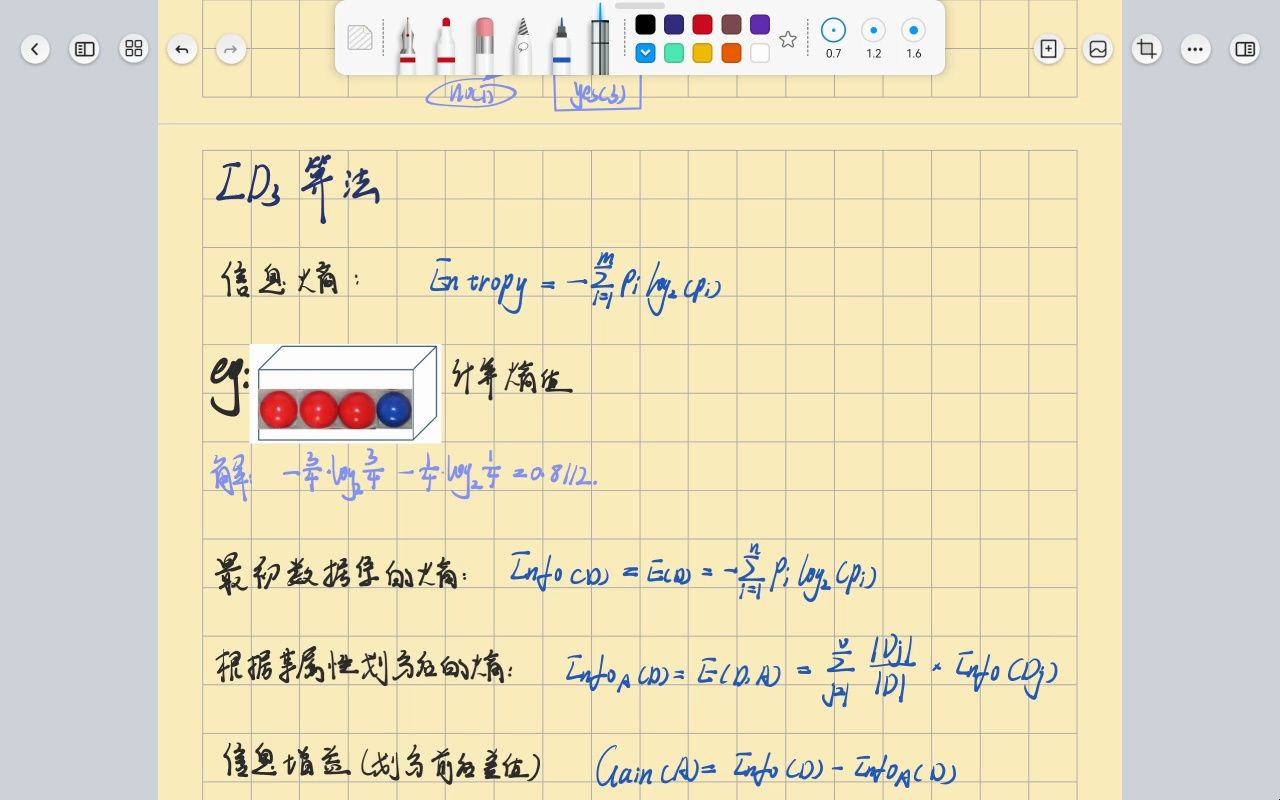 0.7 1.2 1.6
no(1) yes(3)
ID3 算法
信息熵： Entropy = -∑_{i=1}^{m} pi log₂(pi)
eg: 计算熵值
解: -3/4·log₂ 3/4 - 1/4·log₂ 1/4 = 0.8112.
最初数据集的熵： Info(D) = E(D) = -∑_{i=1}^{n} pi log₂(pi)
根据某属性划分后的熵： Info_A(D) = E(D,A) = ∑_{j=1}^{v} |Dj|/|D| × Info(Dj)
信息增益(划分前后差值) Gain(A) = Info(D) - Info_A(D)